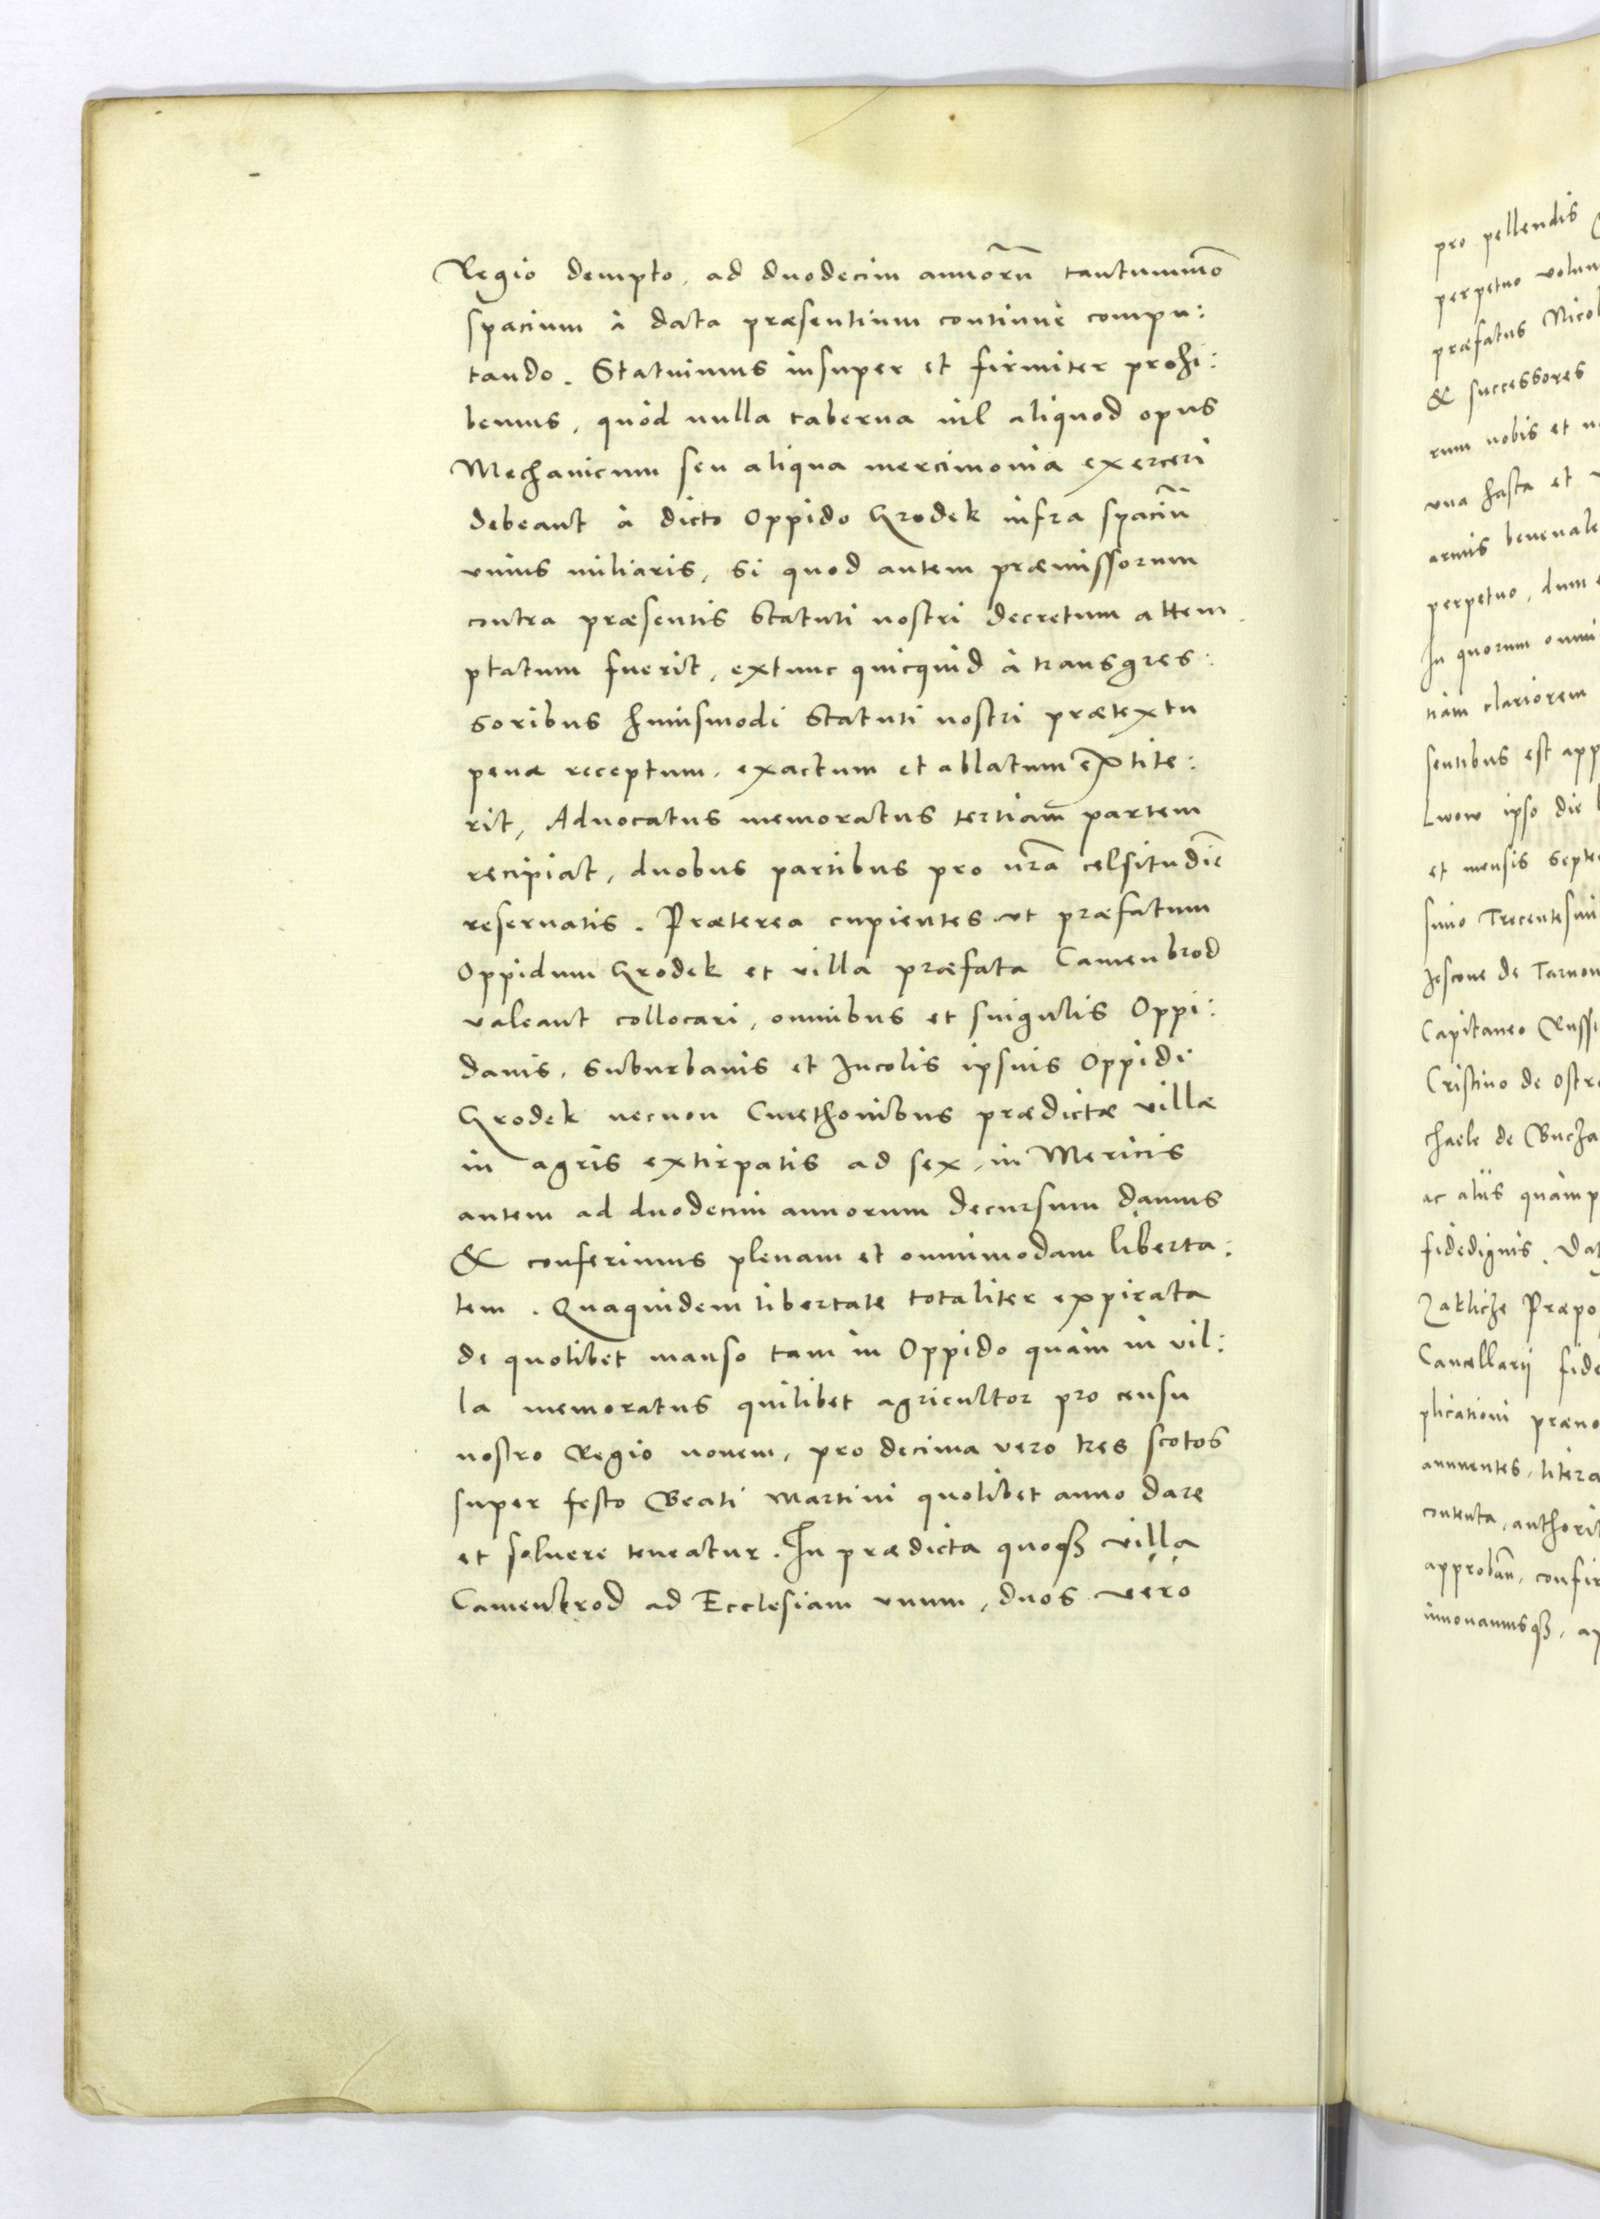 Regio dempto, ad duodecim annorũ tantummõ
spacium à data præsentium continuè compu:
tando. Statuimus insuper et firmiter prohi:
bemus, quòd nulla taberna uel aliquod opus
Mechanicum seu aliqua mercimonia exerceri
debeant à dicto Oppido Grodek infra spaciũ
vnius miliaris, si quod autem præmissorum
contra præsentis Statuti nostri decretum attem
ptatum fuerit, extunc quicquid à transgres:
soribus huiusmodi Statuti nostri prætextu
penæ receptum, exactum et ablatum extite:
rit, Aduocatus memoratus tertiam partem
recipiat, duobus partibus pro nrã celsitudiẽ
reseruatis. Præterea cupientes vt præfatum
Oppidum Grodek et villa præfata Camenbrod
valeant collocari, omnibus et singulis Oppi:
danis, suburbanis et Incolis ipsius Oppidi
Grodek necnon Cmethonibus prædictæ villæ
in agris extirpatis ad sex, in Mericis
autem ad duodecim annorum decursum damus
& conferimus plenam et omnimodam liberta:
tem. Quaquidem libertate totaliter expirata
de quolibet manso tam in Oppido quàm in vil:
la memoratus quilibet agricultor pro censu
nostro Regio nouem, pro decima vero tres scotos
super festo Beati Martini quolibet anno dare
et soluere teneatur. In prædicta quoqꝫ villa
Camenbrod ad Ecclesiam vnum, duos vero
pro pellendis
perpetuo volun
præfatus Nicol
& successores
rum nobis et n
vna hasta et
armis beneuale
perpetuo, dum
In quorum omni
tiam clariorem
sentibus est app
Lwow ipso die
et mensis Septe
simo Trecentesimi
Jescone de Tarnow
Capitaneo Russi
Cristino de Ostro
chaele de Bucza
ac alijs quàmp
fidedignis. Dat
Zaklicze Præpo
Cancellarij fide
plicationi præno
annuentes, litera
contenta, authorit
approbañ, confir
innouamusqꝫ, ap